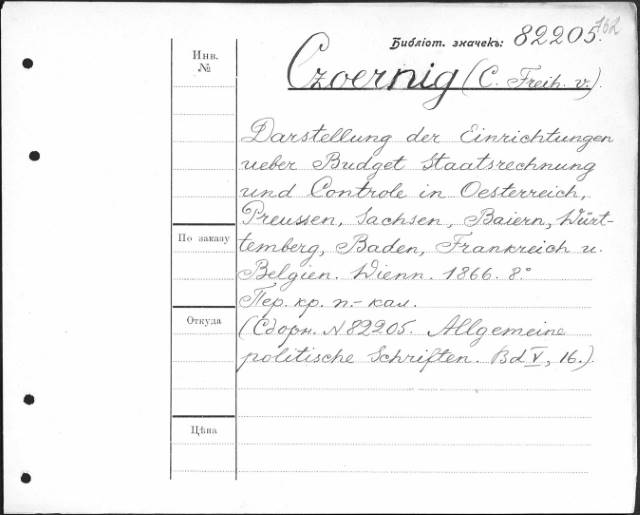 Библіот. значекъ: 82205.
162
Инв.
№
Czoernig (C. Freih. v.)
Darstellung der Einrichtungen
ueber Budget Staatsrechnung
und Controle in Oesterreich,
Preussen, Sachsen, Baiern, Würt-
По заказу
temberg, Baden, Frankreich u.
Belgien. Wienn. 1866. 8.°
Пер. кр. п.-кал.
Откуда
(Сборн. N 82205. Allgemeine
politische Schriften. Bd V, 16.)
Цѣна